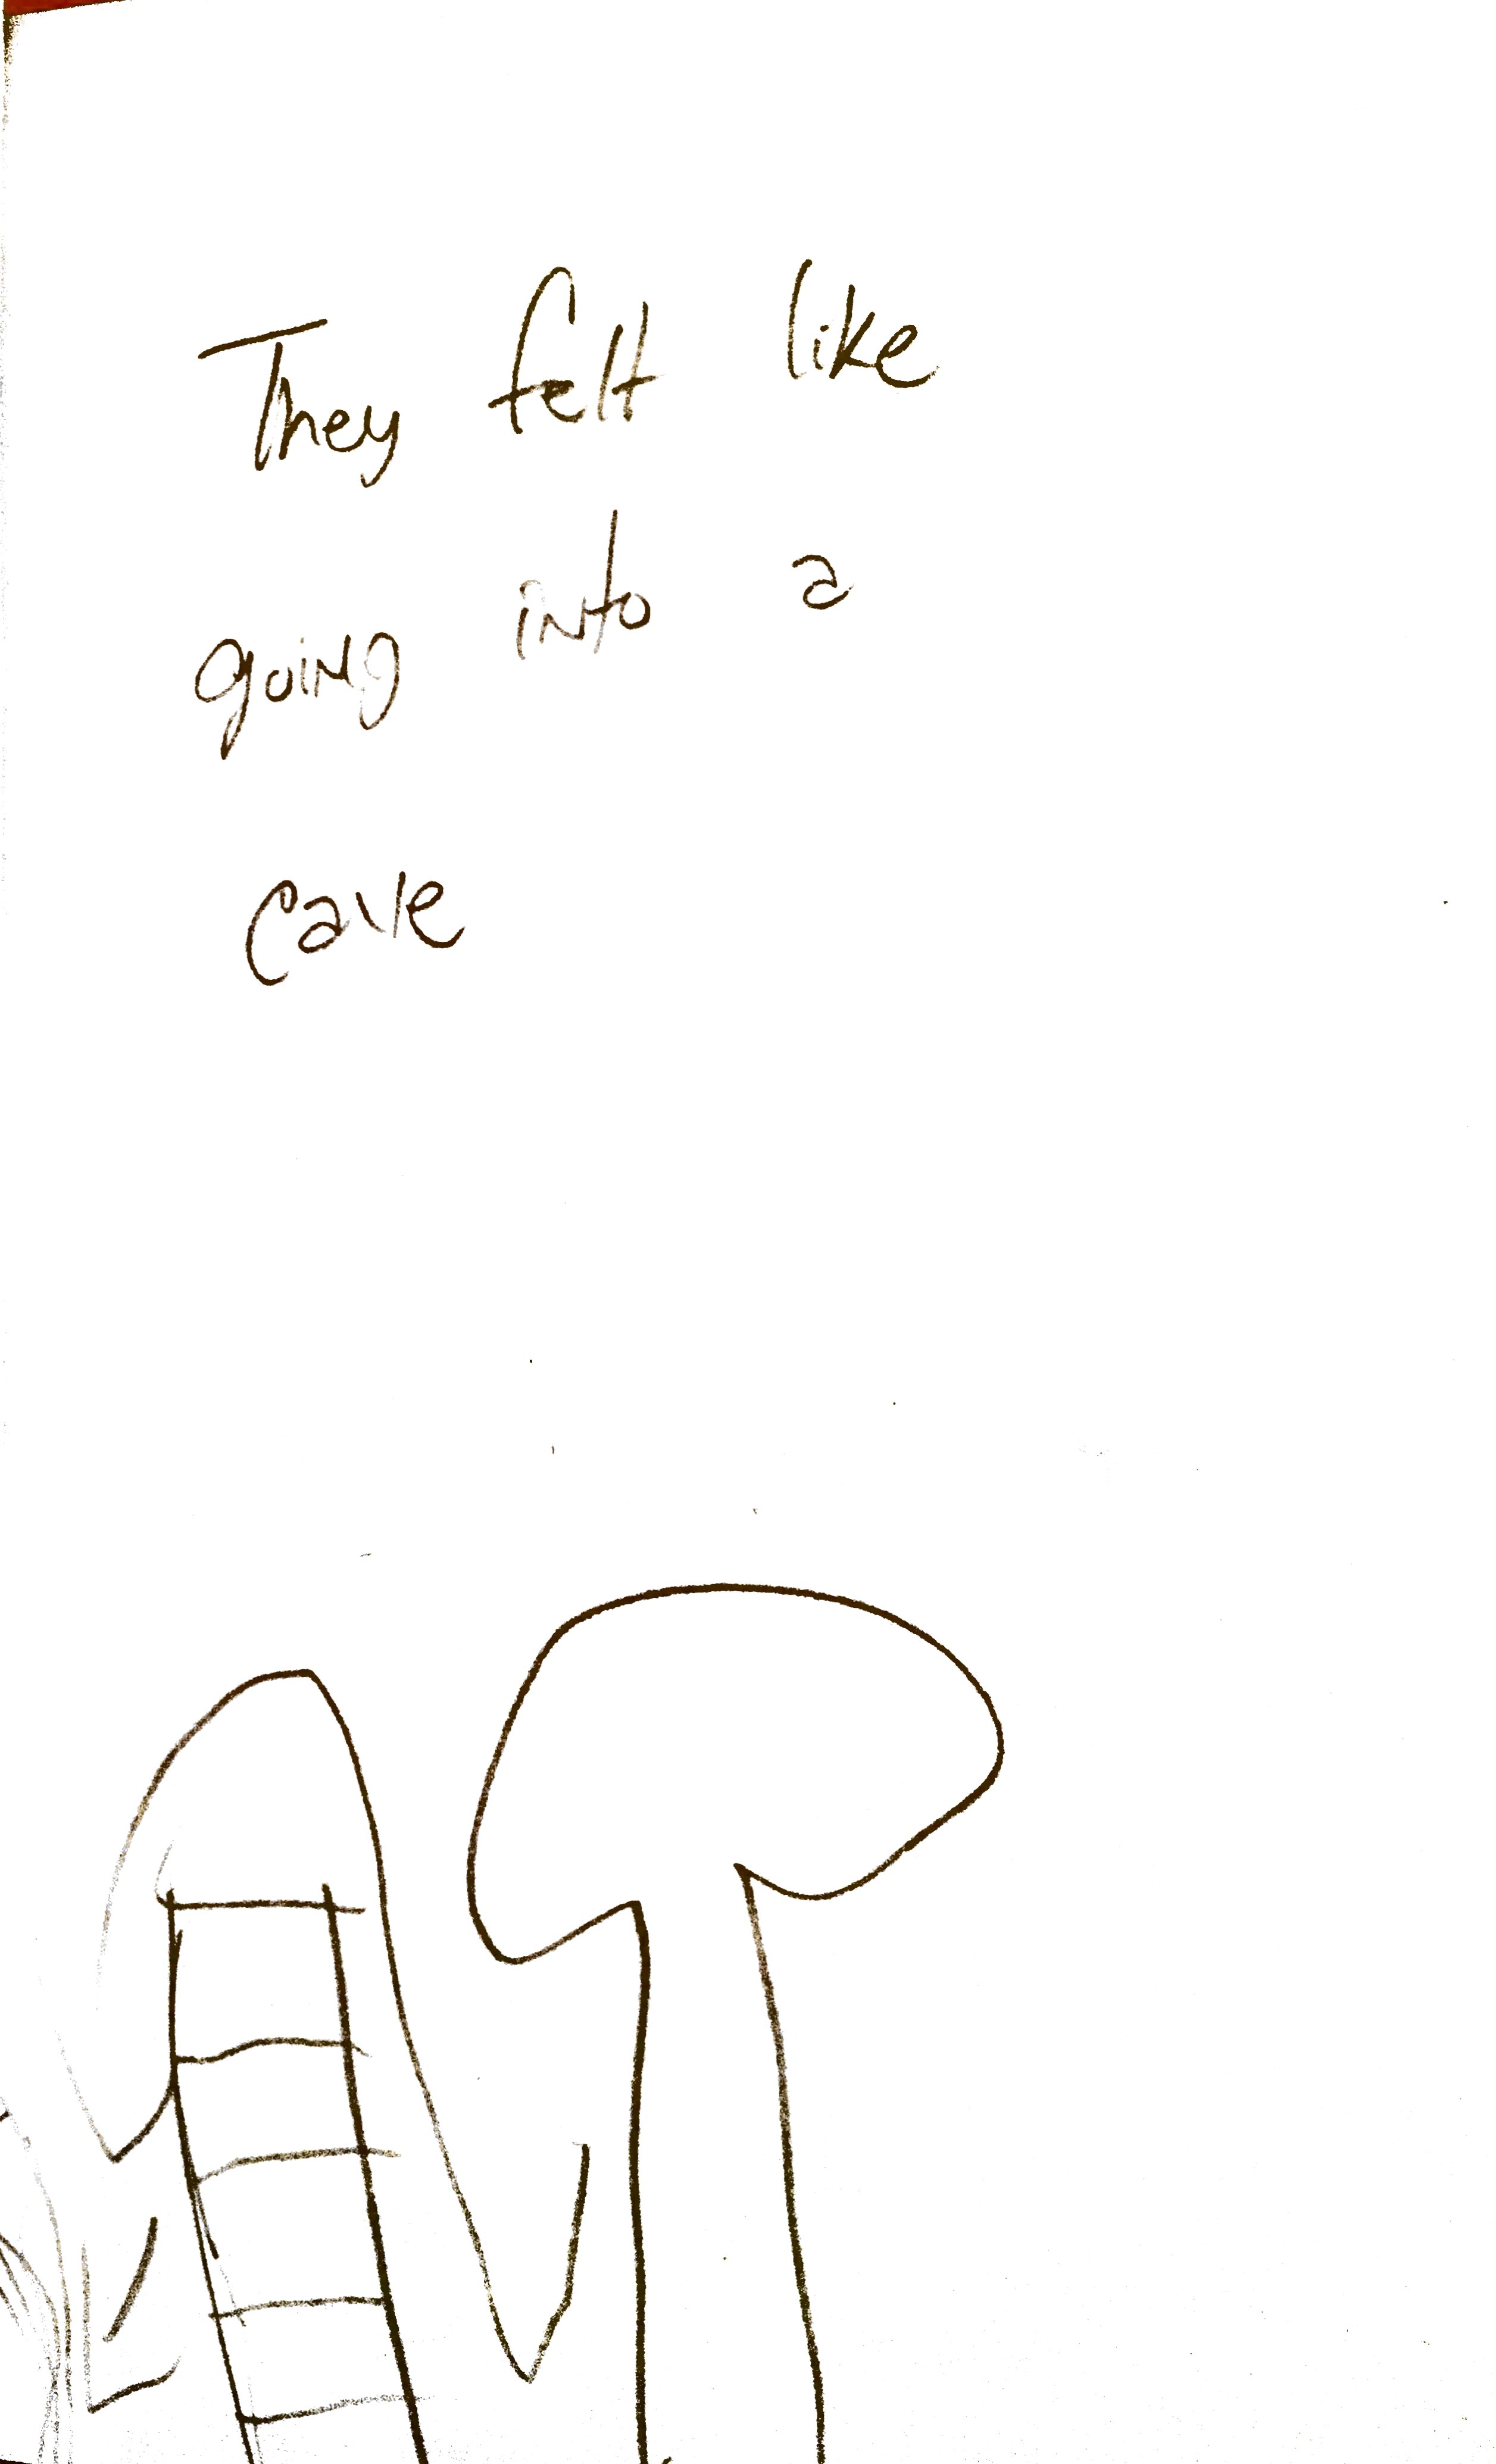 They felt like
going into a
cave